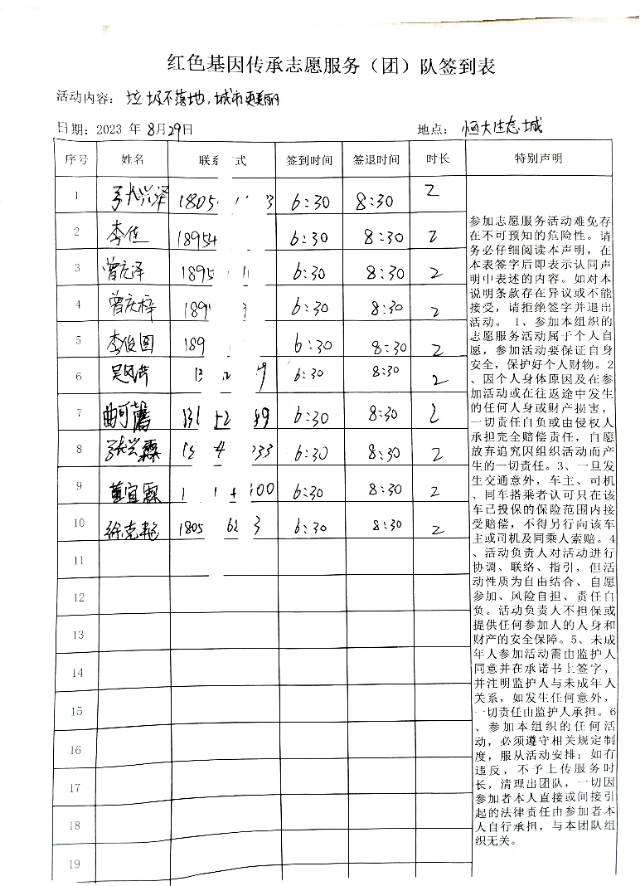 红色基因传承志愿服务（团）队签到表
活动内容：垃圾不落地，城市更美丽
日期：2023 年 8月29日 地点：恒大生态城
序号 姓名 联系 式 签到时间 签退时间 时长 特别声明
1 张兴泽 1805 3 6:30 8:30 2
2 李佳 18954 6:30 8:30 2
3 曾庆泽 1895 6:30 8:30 2
4 曾庆梓 189 6:30 8:30 2
5 李俊国 189 6:30 8:30 2
6 9 6:30 8:30 2
7 曲可馨 131 52 49 6:30 8:30 2
8 张兴霖 13 4 333 6:30 8:30 2
9 董宜霖 1 100 6:30 8:30 2
10 徐克 1805 62 3 6:30 8:30 2
11
12
13
14
15
16
17
18
19
参加志愿服务活动难免存
在不可预知的危险性。请
务必仔细阅读本声明，在
本表签字后即表示认同声
明中表述的内容。如对本
说明条款存在异议或不能
接受，请拒绝签字并退出
活动。 1、参加本组织的
志愿服务活动属于个人自
愿，参加活动要保证自身
安全，保护好个人财物。2
、因个人身体原因及在参
加活动或在往返途中发生
的任何人身或财产损害，
一切责任自负或由侵权人
承担完全赔偿责任，自愿
放弃追究因组织活动而产
生的一切责任。3、一旦发
生交通意外，车主、司机
、同车搭乘者认可只在该
车已投保的保险范围内接
受赔偿，不得另行向该车
主或司机及同乘人索赔。4
、活动负责人对活动进行
协调、联络、指引，但活
动性质为自由结合、自愿
参加、风险自担、责任自
负。活动负责人不担保或
提供任何参加人的人身和
财产的安全保障。5、未成
年人参加活动需由监护人
同意并在承诺书上签字，
并注明监护人与未成年人
关系，如发生任何意外，
一切责任由监护人承担。6
、参加本组织的任何活
动，必须遵守相关规定制
度，服从活动安排；如有
违反，不予上传服务时
长，清理出团队，一切因
参加者本人直接或间接引
起的法律责任由参加者本
人自行承担，与本团队组
织无关。